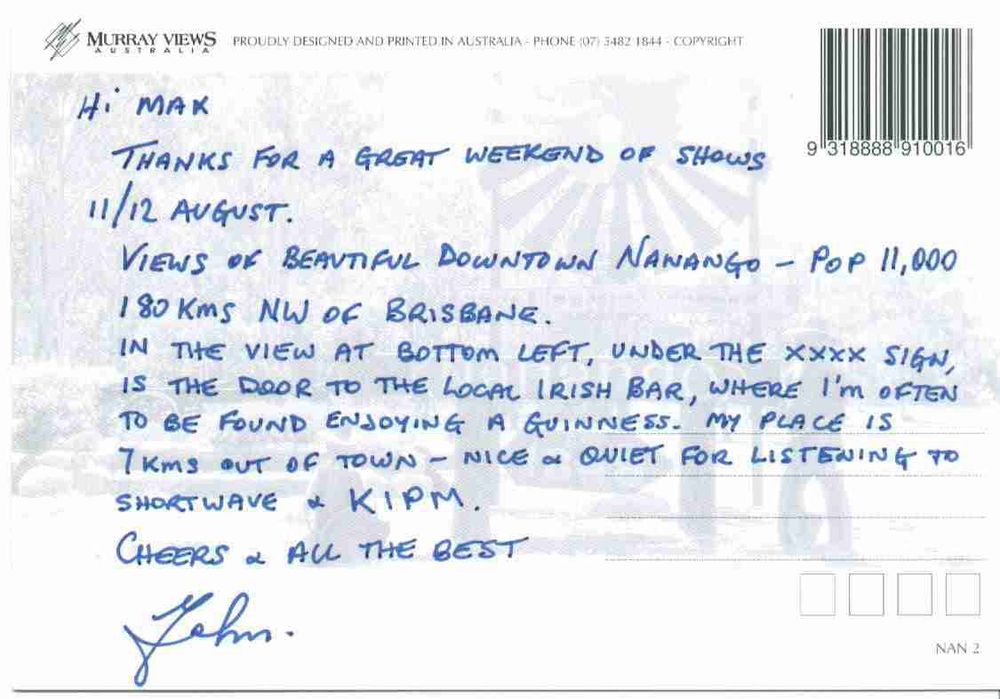 MURRAY VIEWS
AUSTRALIA
PROUDLY DESIGNED AND PRINTED IN AUSTRALIA - PHONE (07) 5482 1844 - COPYRIGHT
9 318888 910016
Hi MAK
THANKS FOR A GREAT WEEKEND OF SHOWS
11/12 AUGUST.
VIEWS OF BEAUTIFUL DOWNTOWN NANANGO - POP 11,000
180 KMS NW OF BRISBANE.
IN THE VIEW AT BOTTOM LEFT, UNDER THE XXXX SIGN,
IS THE DOOR TO THE LOCAL IRISH BAR, WHERE I'M OFTEN
TO BE FOUND ENJOYING A GUINNESS. MY PLACE IS
7 KMS OUT OF TOWN - NICE & QUIET FOR LISTENING TO
SHORTWAVE & KIPM.
CHEERS & ALL THE BEST
John.
NAN 2